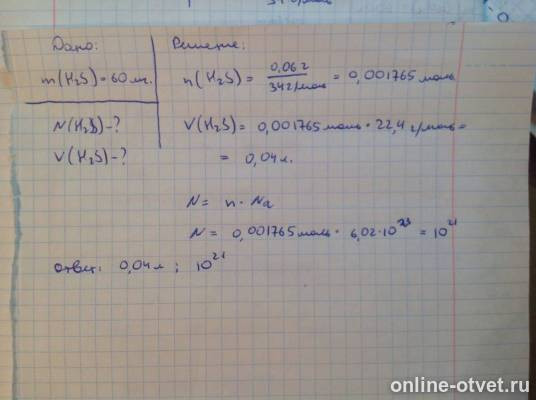 Дано:
m(H₂S) = 60 мг.
N(H₂S) - ?
V(H₂S) - ?
Решение:
n(H₂S) = 0,06 г / 34 г/моль = 0,001765 моль
V(H₂S) = 0,001765 моль · 22,4 г/моль =
= 0,04 л.
N = n · Na
N = 0,001765 моль · 6,02·10²³ = 10²¹
ответ: 0,04 л ; 10²¹
online-otvet.ru